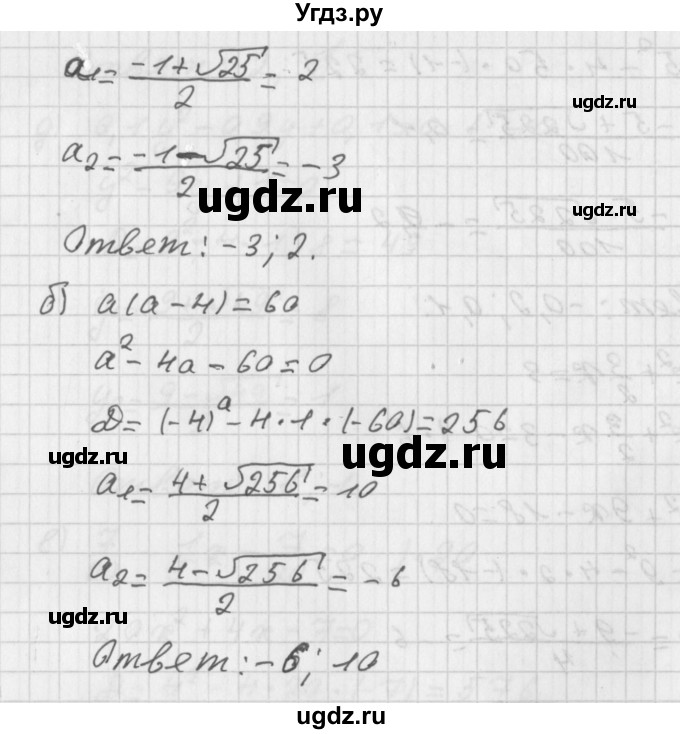 Угдз.ру
a₁ = (-1+√25)/2 = 2
ugdz.ru
a₂ = (-1-√25)/2 = -3
ugdz.ru
ugdz.ru
Ответ: -3; 2.
б) a(a-4)=60
a²-4a-60=0
D=(-4)²-4·1·(-60)=256
ugdz.ru
ugdz.ru
a₁ = (4+√256)/2 = 10
ugdz.ru
a₂ = (4-√256)/2 = -6
ugdz.ru
ugdz.ru
Ответ: -6; 10
ugdz.ru